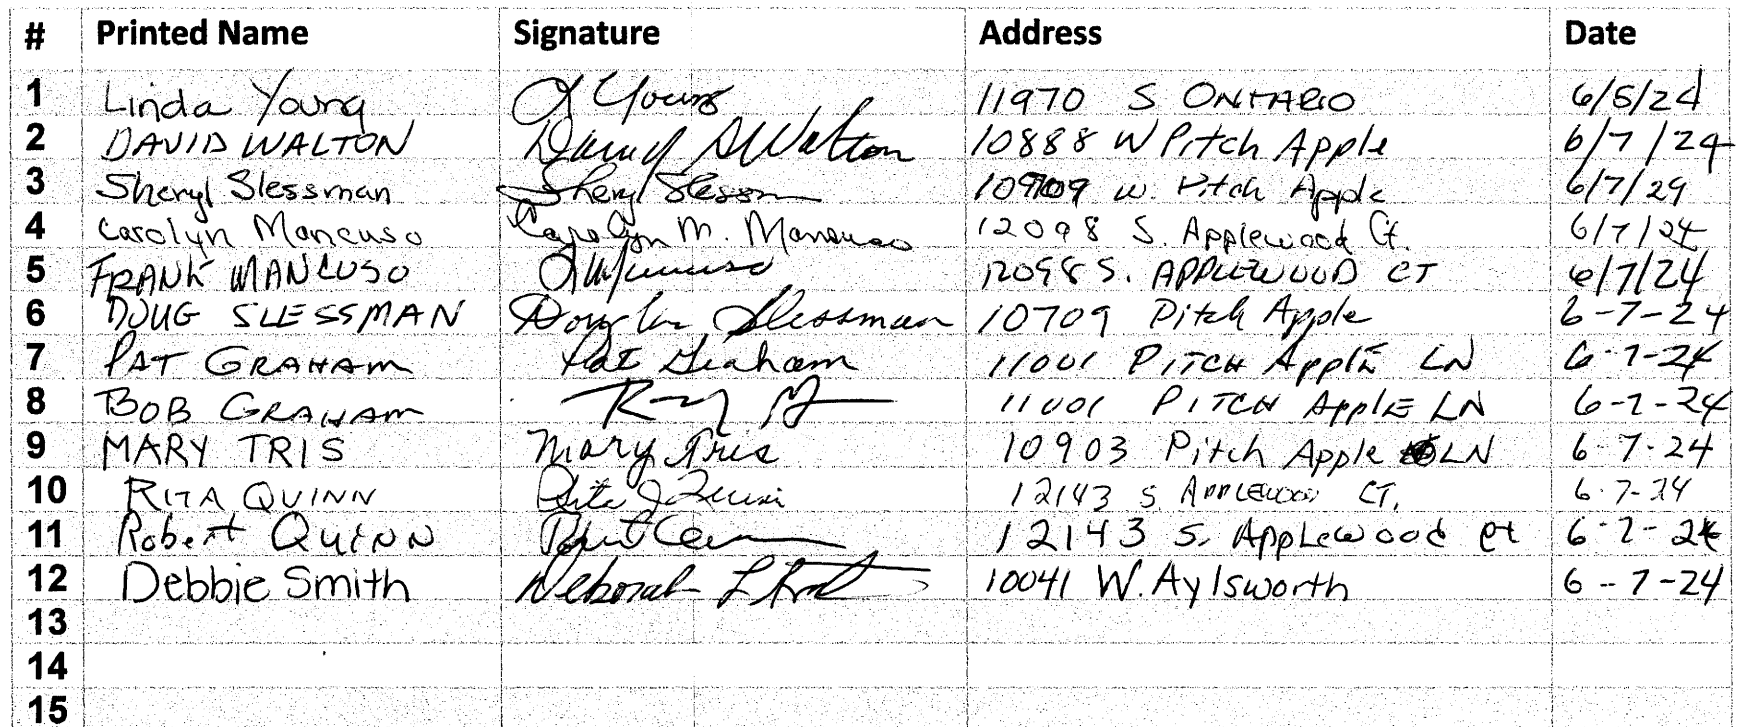 # Printed Name Signature Address Date
1 Linda Young L Young 11970 S ONTARIO 6/5/24
2 DAVID WALTON David Walton 10888 W Pitch Apple 6/7/24
3 Sheryl Slessman Sheryl Slessm 10709 W. Pitch Apple 6/7/24
4 Carolyn Mancuso Carolyn M. Mancuso 12098 S. Applewood Ct. 6/7/24
5 FRANK MANCUSO 12098 S. APPLEWOOD CT 6/7/24
6 DOUG SLESSMAN Douglas Slessman 10709 Pitch Apple 6-7-24
7 PAT GRAHAM Pat Graham 11001 PITCH Apple LN 6-7-24
8 BOB GRAHAM 11001 PITCH Apple LN 6-7-24
9 MARY TRIS Mary Tris 10903 Pitch Apple LN 6-7-24
10 RITA QUINN Rita J Quinn 12143 S APPLEWOOD CT. 6-7-24
11 Robert QUINN 12143 S. Applewood ct 6-7-24
12 Debbie Smith Deborah L 10041 W. Aylsworth 6-7-24
13
14
15